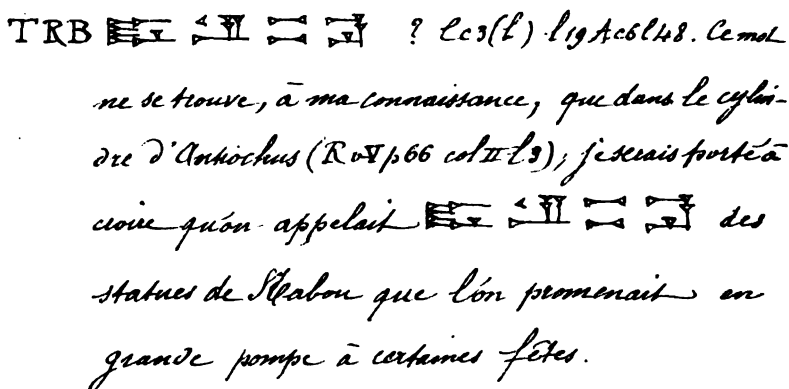 TRB ? lc3(l) l19 Ac6l48. Ce mot
ne se trouve, à ma connaissance, que dans le cylin-
dre d'Antiochus (R v V p 66 col II l 3); je serais porté à
croire qu'on appelait des
statues de Nabou que l'on promenait en
grande pompe à certaines fêtes.